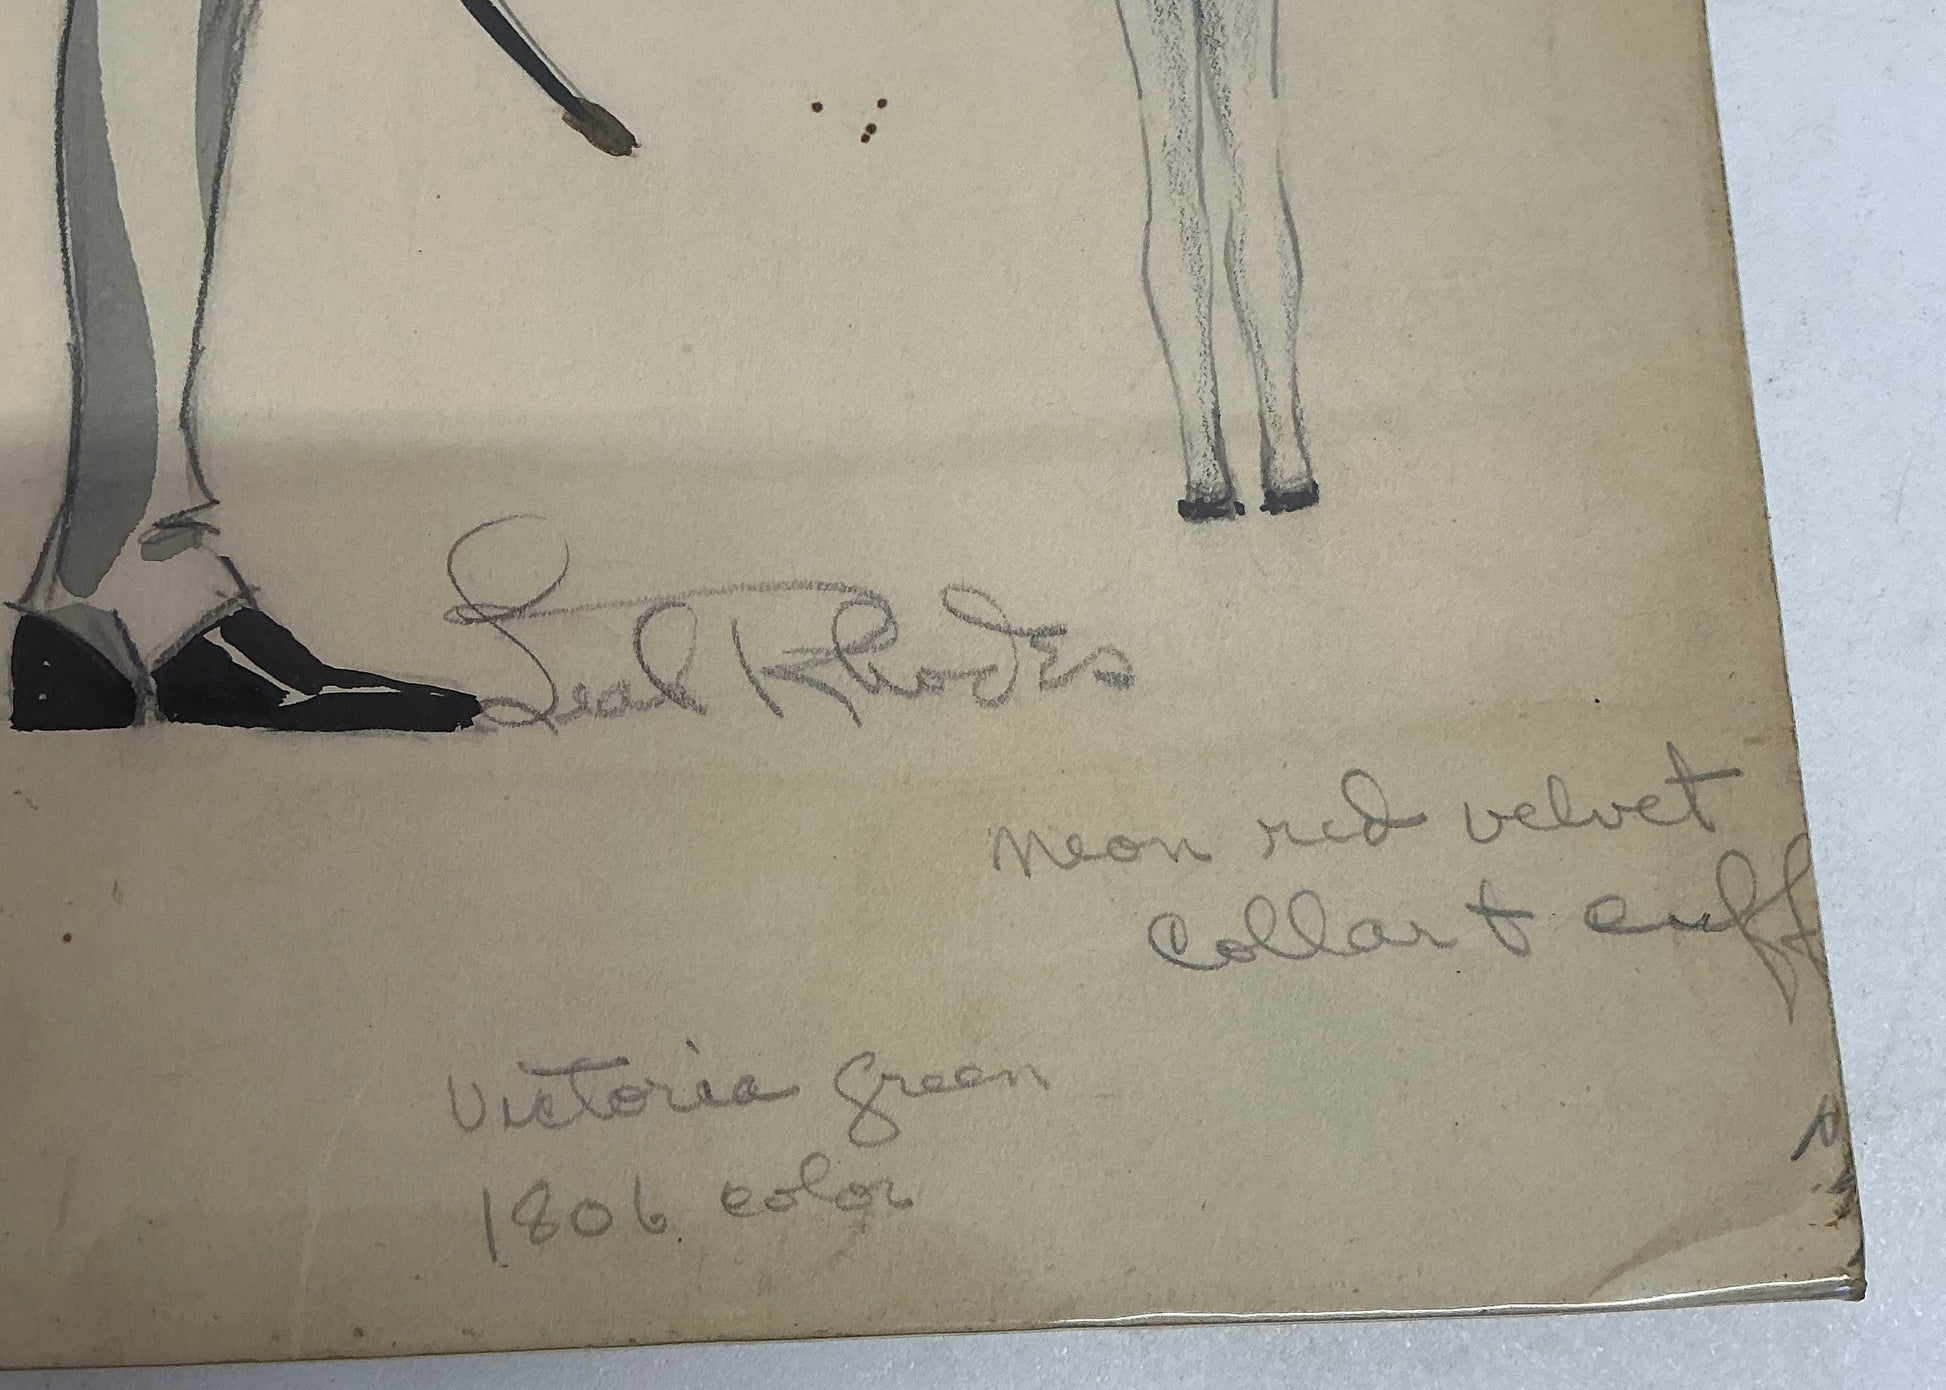 Leah Rhodes
Neon red velvet
Collar + cuff
Victoria green
1806 color